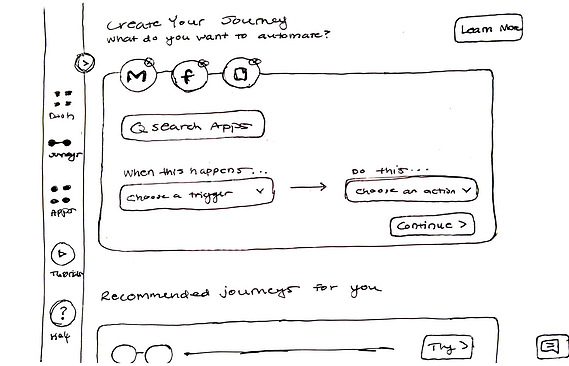 Create Your Journey
What do you want to automate?
Learn More
Dash
Journeys
Apps
Tutorials
? 
Help
M
f
Search Apps
When this happens...
Choose a trigger
Do this...
Choose an action
Continue >
Recommended journeys for you
Try >